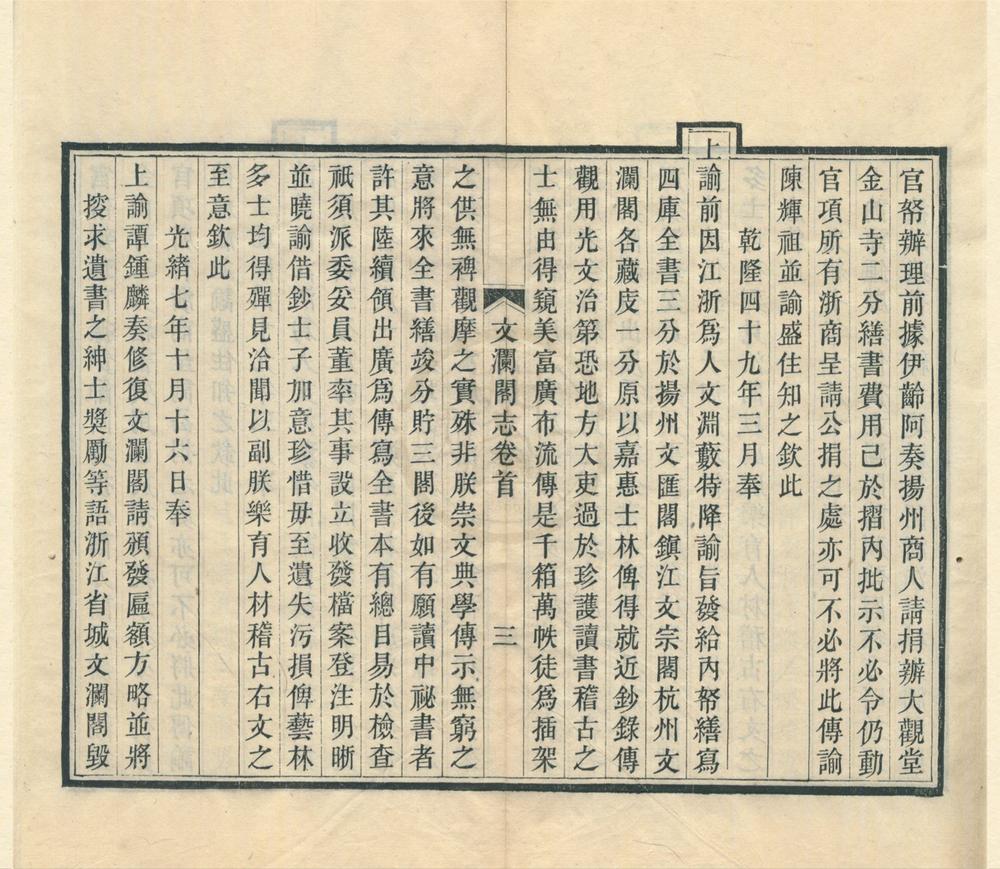 官帑辦理前據伊齡阿奏揚州商人請捐辦大觀堂
金山寺二分繕書費用已於摺內批示不必令仍動
官項所有浙商呈請公捐之處亦可不必將此傳諭
陳輝祖並諭盛住知之欽此
乾隆四十九年三月奉
上諭前因江浙爲人文淵藪特降諭旨發給內帑繕寫
四庫全書三分於揚州文匯閣鎭江文宗閣杭州文
瀾閣各藏庋一分原以嘉惠士林俾得就近鈔錄傳
觀用光文治第恐地方大吏過於珍護讀書稽古之
士無由得窺美富廣布流傳是千箱萬帙徒爲插架
文瀾閣志卷首 三
之供無裨觀摩之實殊非朕崇文典學傳示無窮之
意將來全書繕竣分貯三閣後如有願讀中祕書者
許其陸續領出廣爲傳寫全書本有總目易於檢查
祇須派委妥員董率其事設立收發檔案登注明晰
並曉諭借鈔士子加意珍惜毋至遺失污損俾藝林
多士均得殫見洽聞以副朕樂育人材稽古右文之
至意欽此
光緒七年十月十六日奉
上諭譚鍾麟奏修復文瀾閣請頒發匾額方略並將
搜求遺書之紳士獎勵等語浙江省城文瀾閣毀